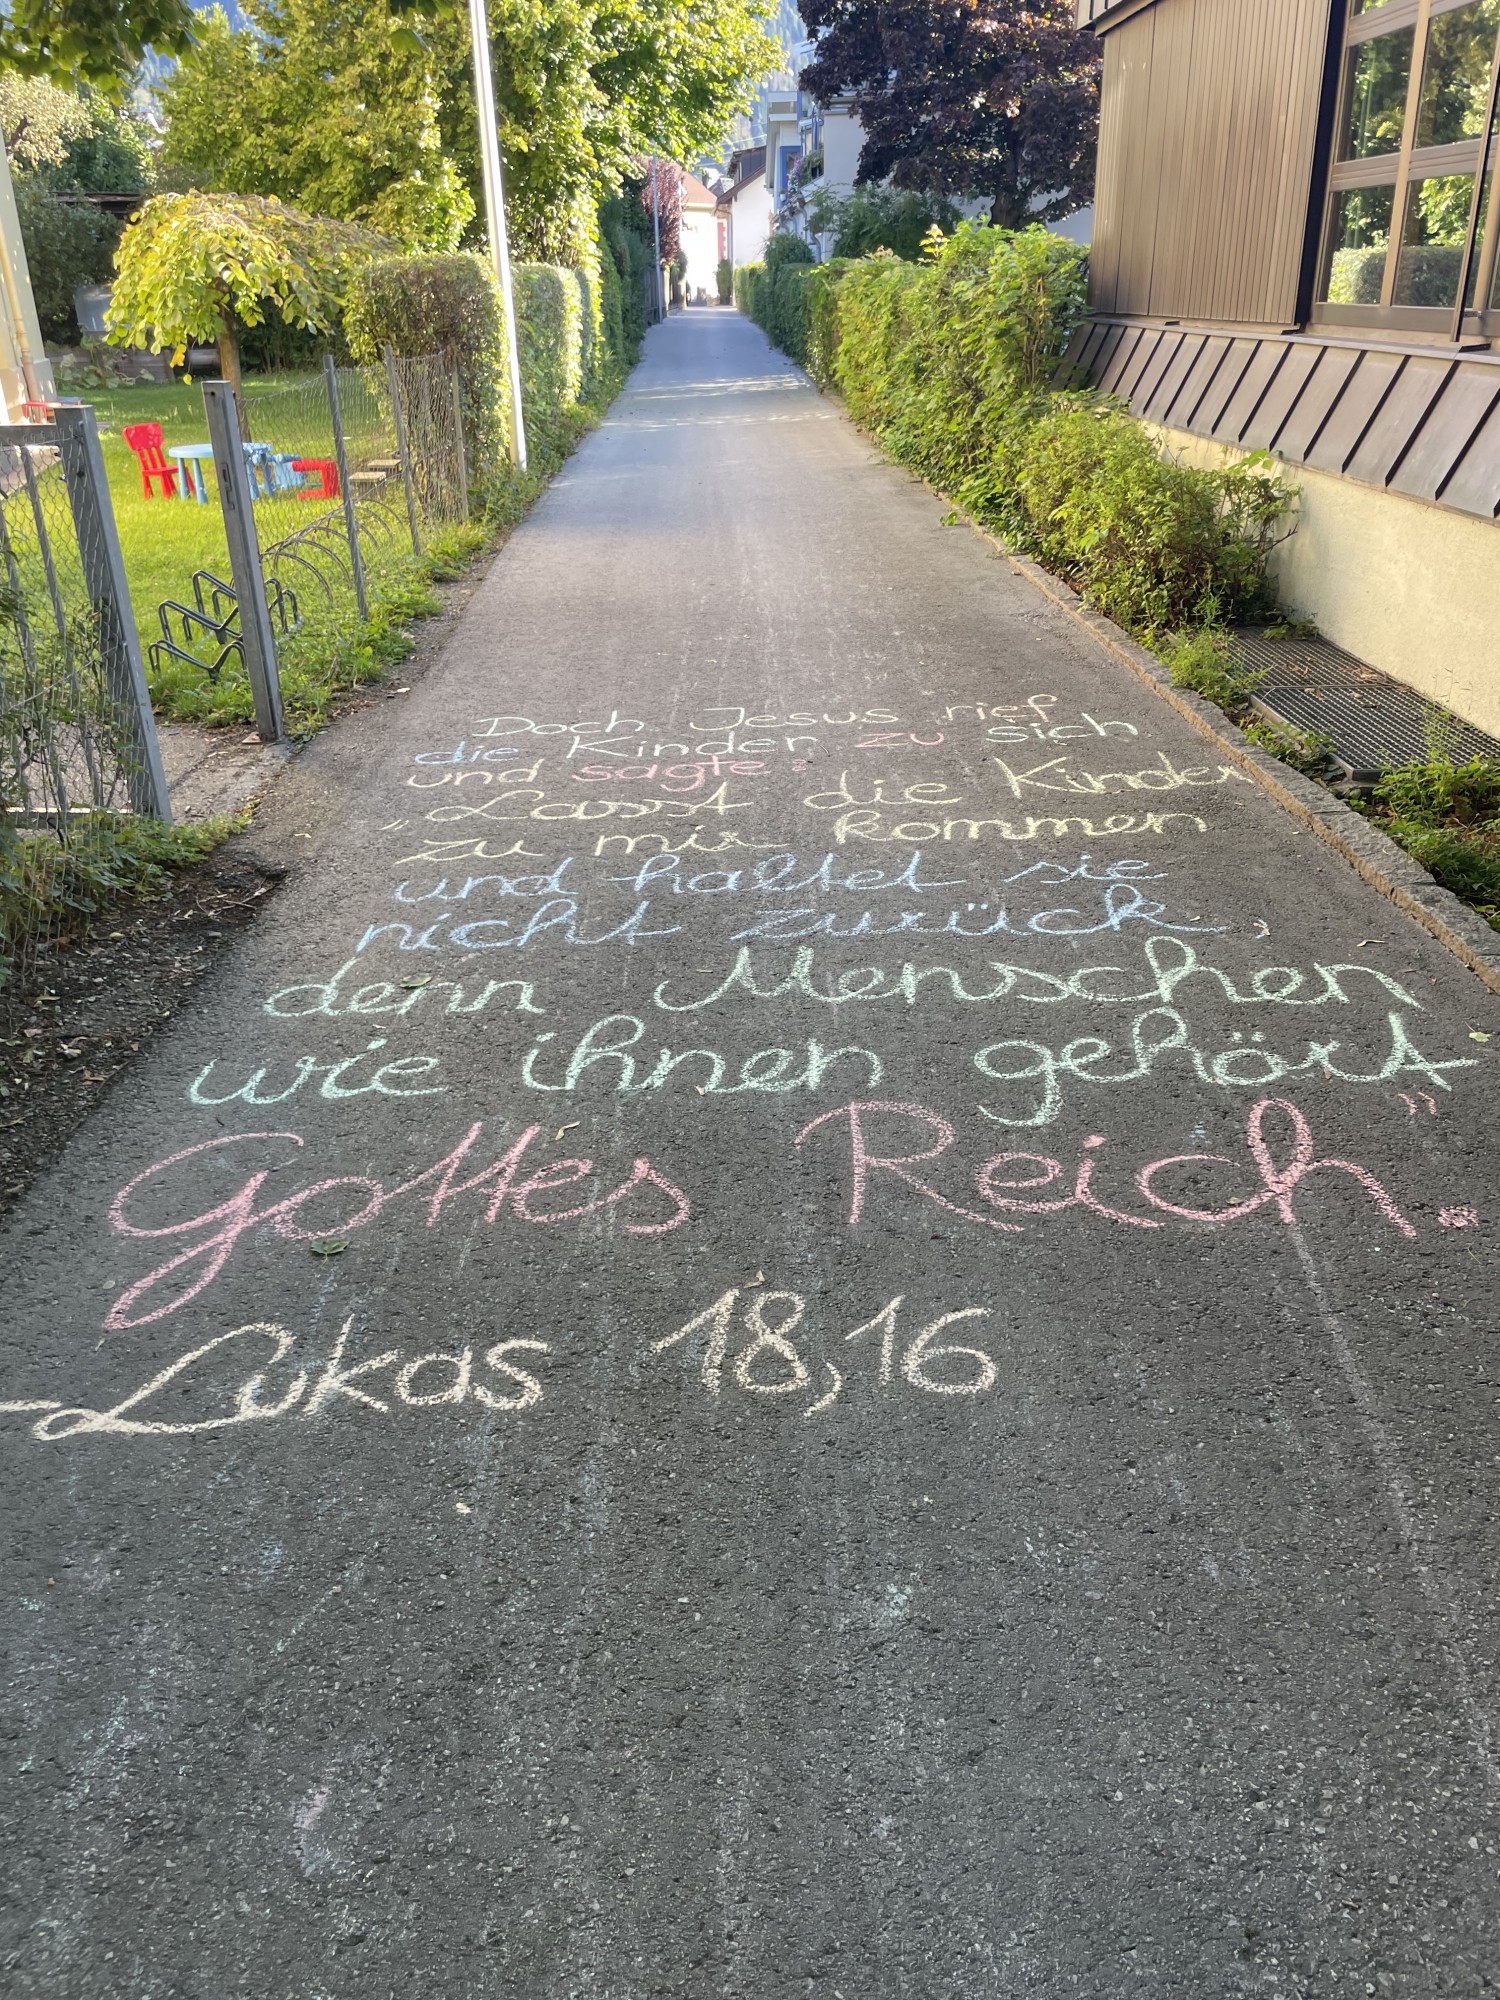 Doch Jesus rief
die Kinder zu sich
und sagte:
„Lasst die Kinder
zu mir kommen
und haltet sie
nicht zurück,
denn Menschen
wie ihnen gehört
Gottes Reich."
Lukas 18,16